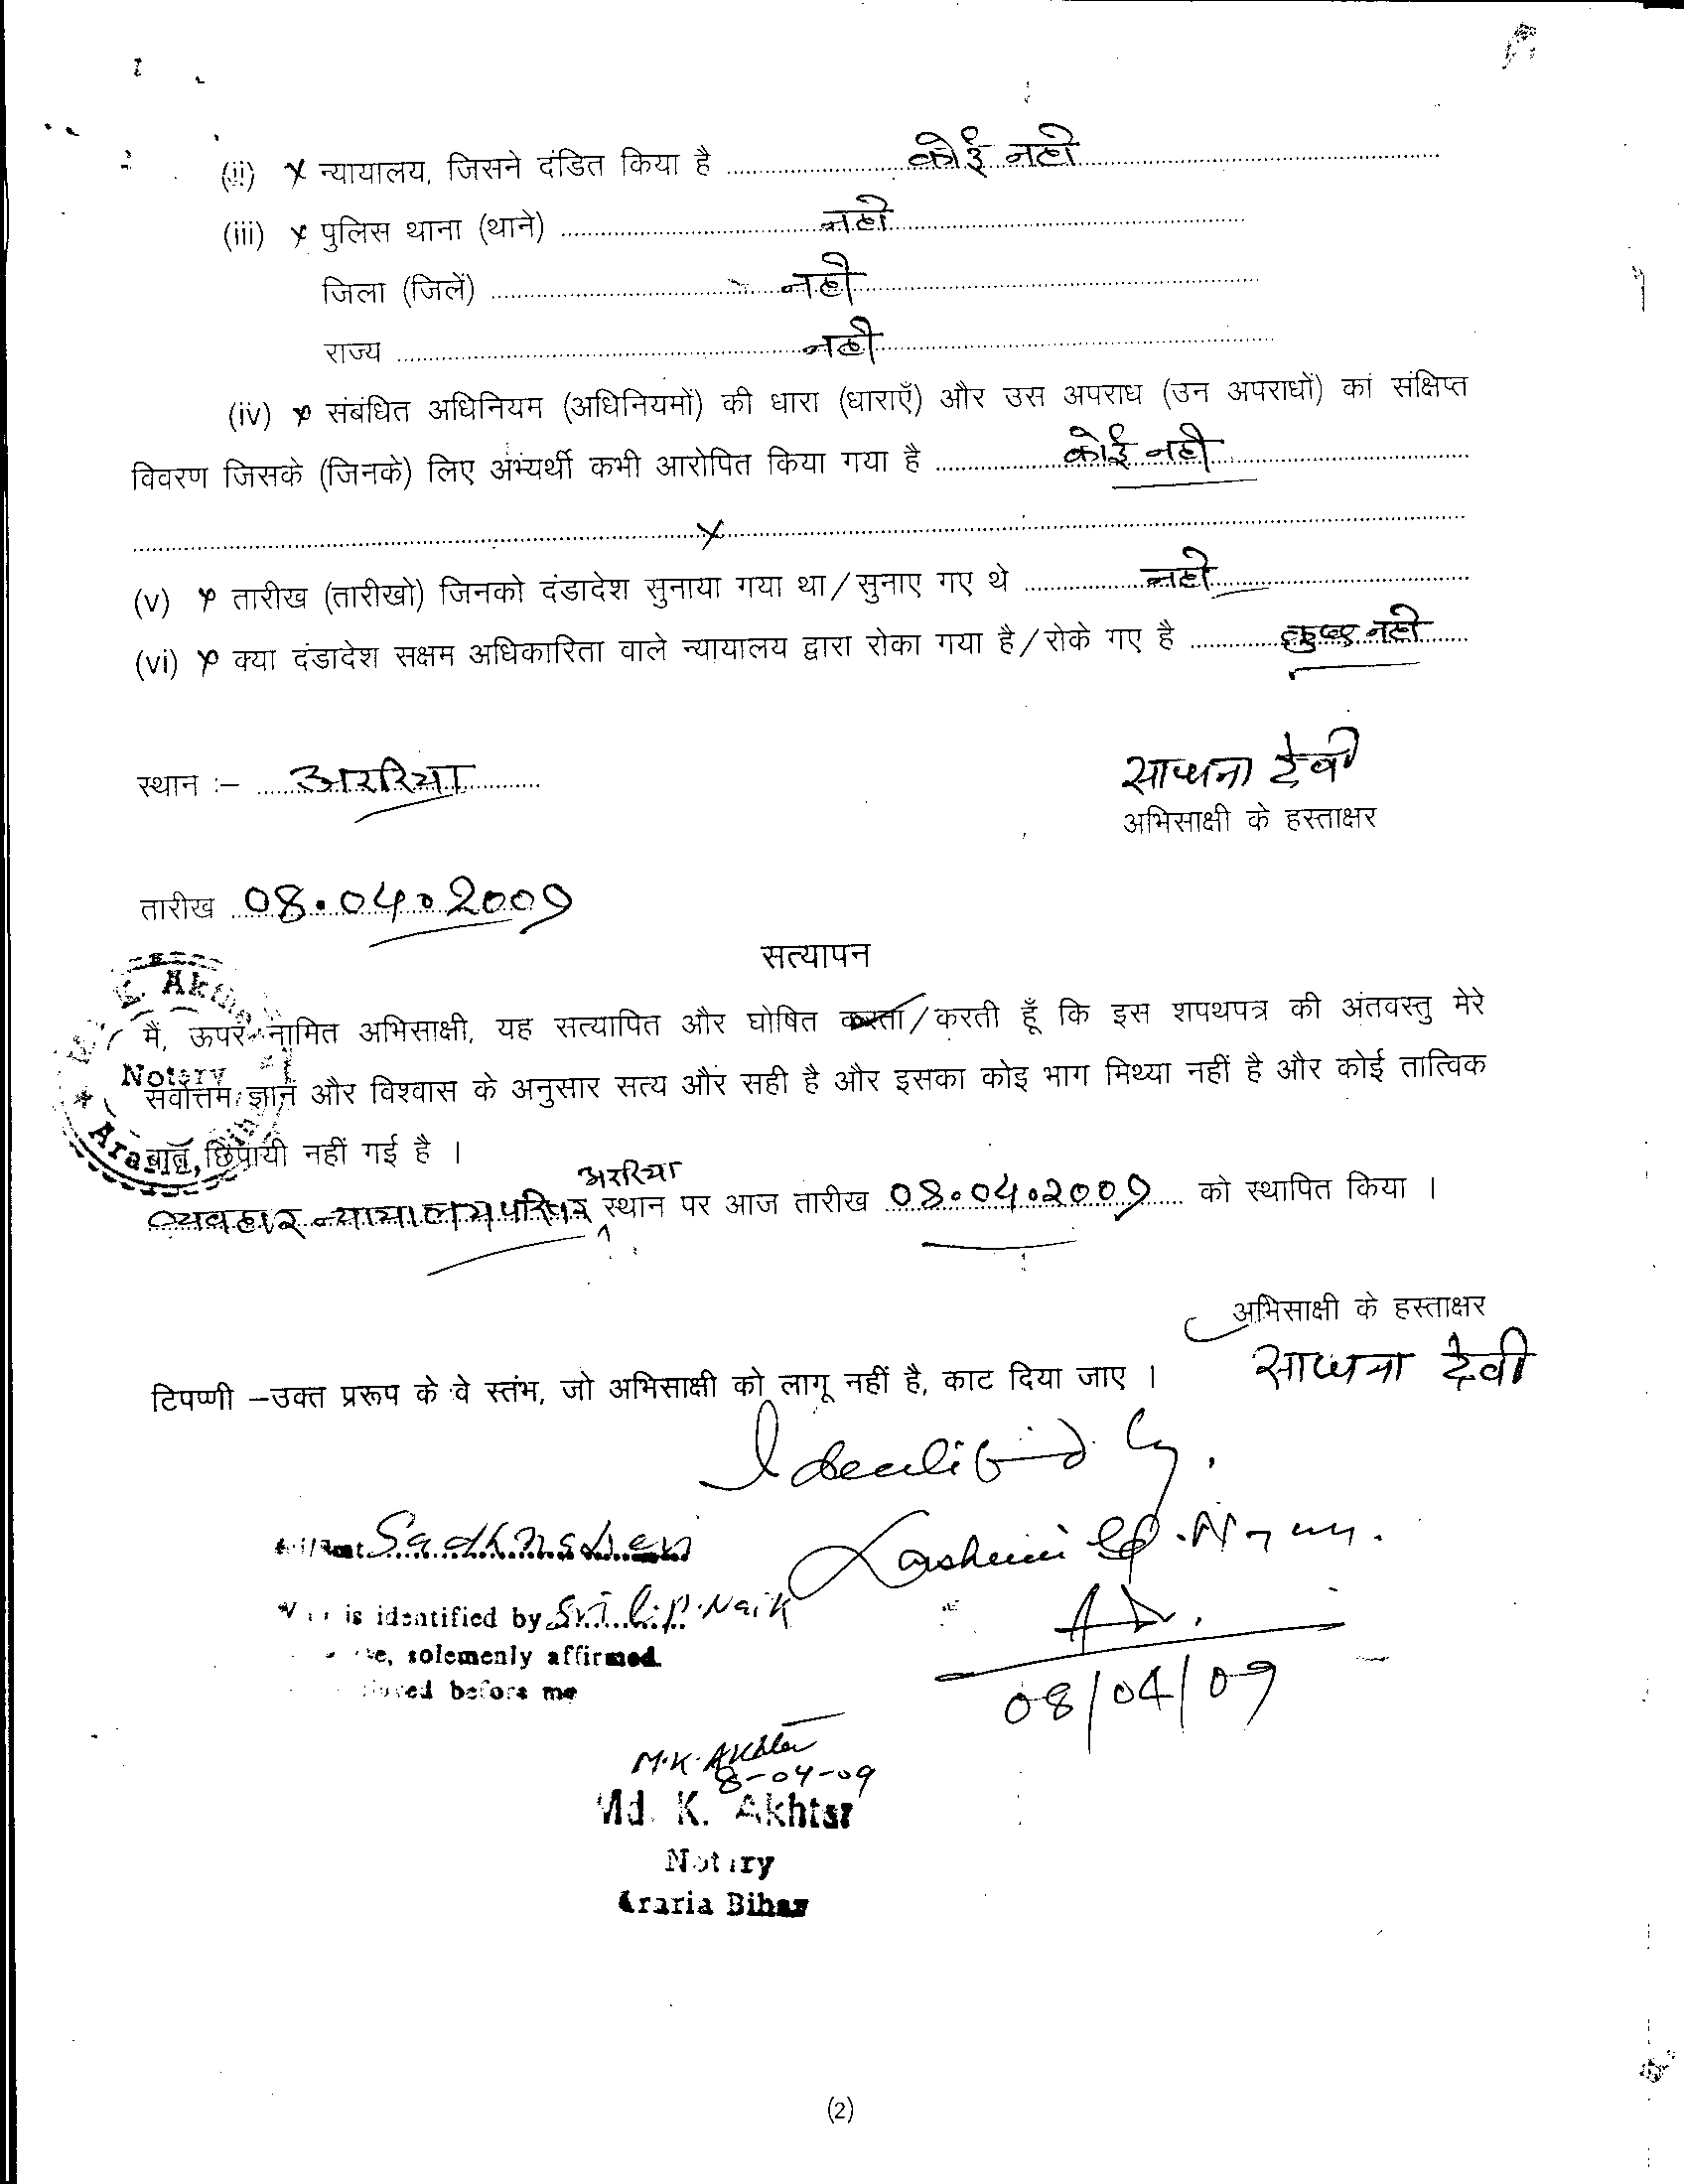 (ii) x न्यायालय, जिसने दंडित किया है कोई नही
(iii) x पुलिस थाना (थाने) नही
जिला (जिलें) नही
राज्य नही
(iv) x संबंधित अधिनियम (अधिनियमों) की धारा (धाराएँ) और उस अपराध (उन अपराधों) कां संक्षिप्त
विवरण जिसके (जिनके) लिए अभ्यर्थी कभी आरोपित किया गया है कोई नही
x
(v) x तारीख (तारीखो) जिनको दंडादेश सुनाया गया था/सुनाए गए थे नही
(vi) x क्या दंडादेश सक्षम अधिकारिता वाले न्यायालय द्वारा रोका गया है/रोके गए है कुछ नही
स्थान :– अररिया
साधना देवी
अभिसाक्षी के हस्ताक्षर
तारीख 08.04.2009
सत्यापन
मैं, ऊपर नामित अभिसाक्षी, यह सत्यापित और घोषित करता/करती हूँ कि इस शपथपत्र की अंतवस्तु मेरे
सर्वोत्तम ज्ञान और विश्वास के अनुसार सत्य और सही है और इसका कोइ भाग मिथ्या नहीं है और कोई तात्विक
बात छिपायी नहीं गई है ।
Akhtar
Notary
Araria,
अररिया
व्यवहार न्यायालय परिसर स्थान पर आज तारीख 08.04.2009 को स्थापित किया ।
अभिसाक्षी के हस्ताक्षर
साधना देवी
टिपण्णी –उक्त प्ररूप के वे स्तंभ, जो अभिसाक्षी को लागू नहीं है, काट दिया जाए ।
Identified by.
Sadhna Devi
is identified by Sri L.P. Naik
solemenly affirmed
before me
Adv.
08/04/09
M.K. Akhtar
8-04-09
Md. K. Akhtar
Notary
Araria Bihar
(2)